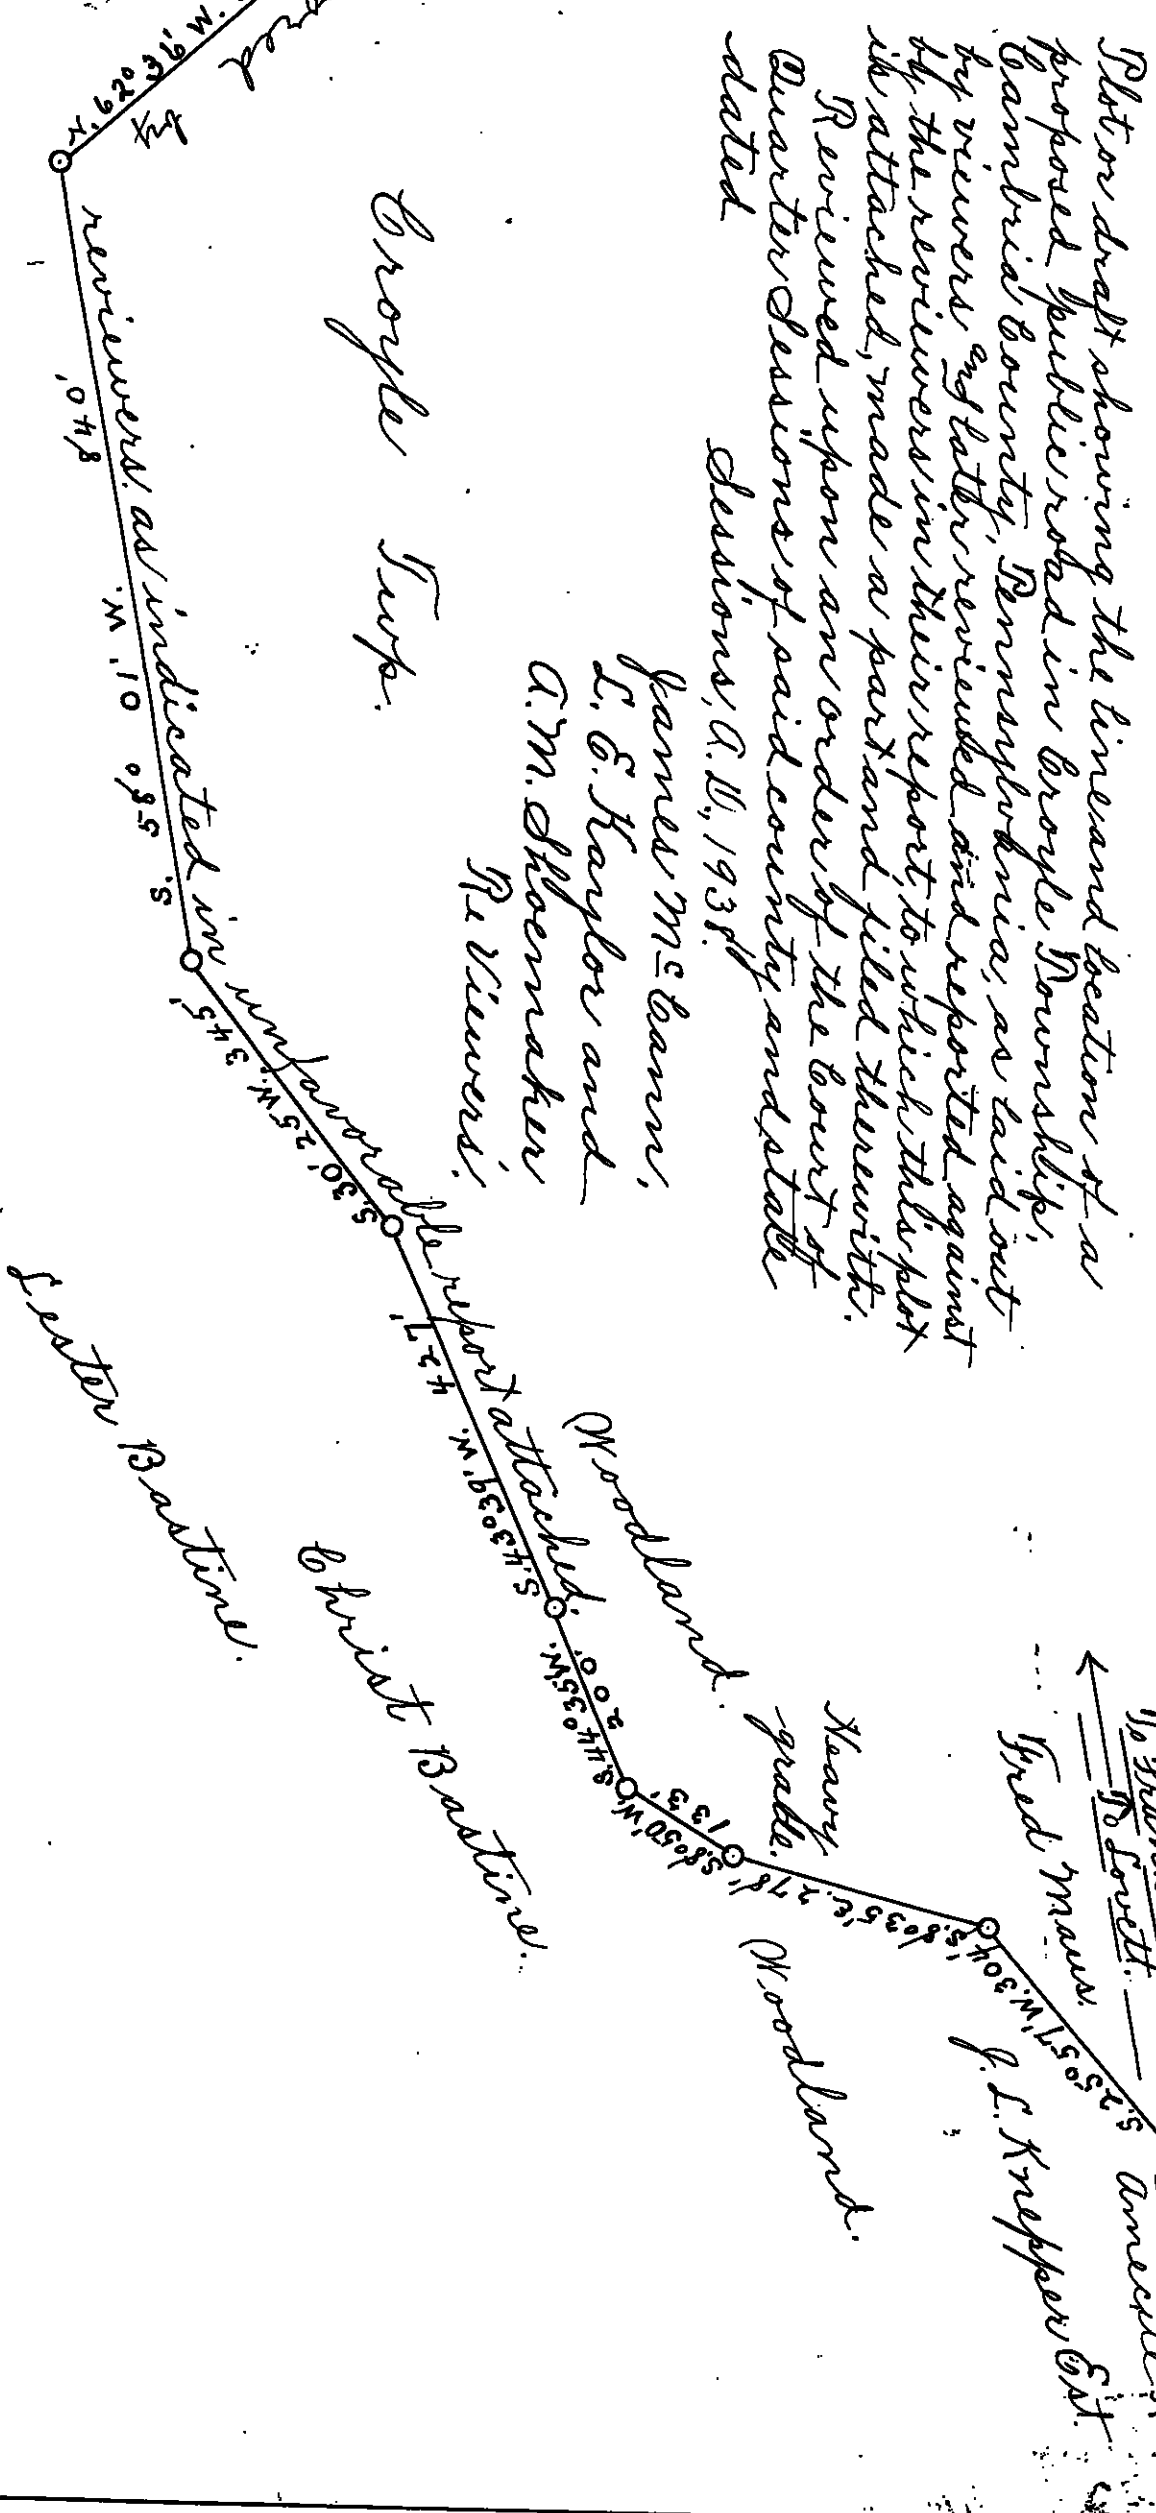 Plot or draft showing the line and location of a
proposed public road in Croyle Township,
Cambria County, Pennsylvania, as laid out
by viewers and later reviewed and reported against
by the reviewers in their report, to which this plot
is attached, made a part and filed therewith.
Reviewed upon an order of the Court of
Quarter Sessions of said county and state
dated
Sessions, A.D., 1938.
James McCann,
L. E. Kaylor and
A. M. Shoemaker
Re Viewers.
Croyle Twp.
reviewers as indicated in unfavorable report attached.
840'
S. 58° 01' W.
345'
S. 30° 25' W.
427'
S. 43° 39' W.
200'
S. 44° 35' W.
133'
S. 8° 50' W.
278'
S. 8° 35' E.
304'
S. 25° 57' W.
Woodland.
Heavy
grade.
Woodland.
To Lovett.
Fred Maus.
J. L. Knepper Est.
Christ Bastine.
Lester Bastine.